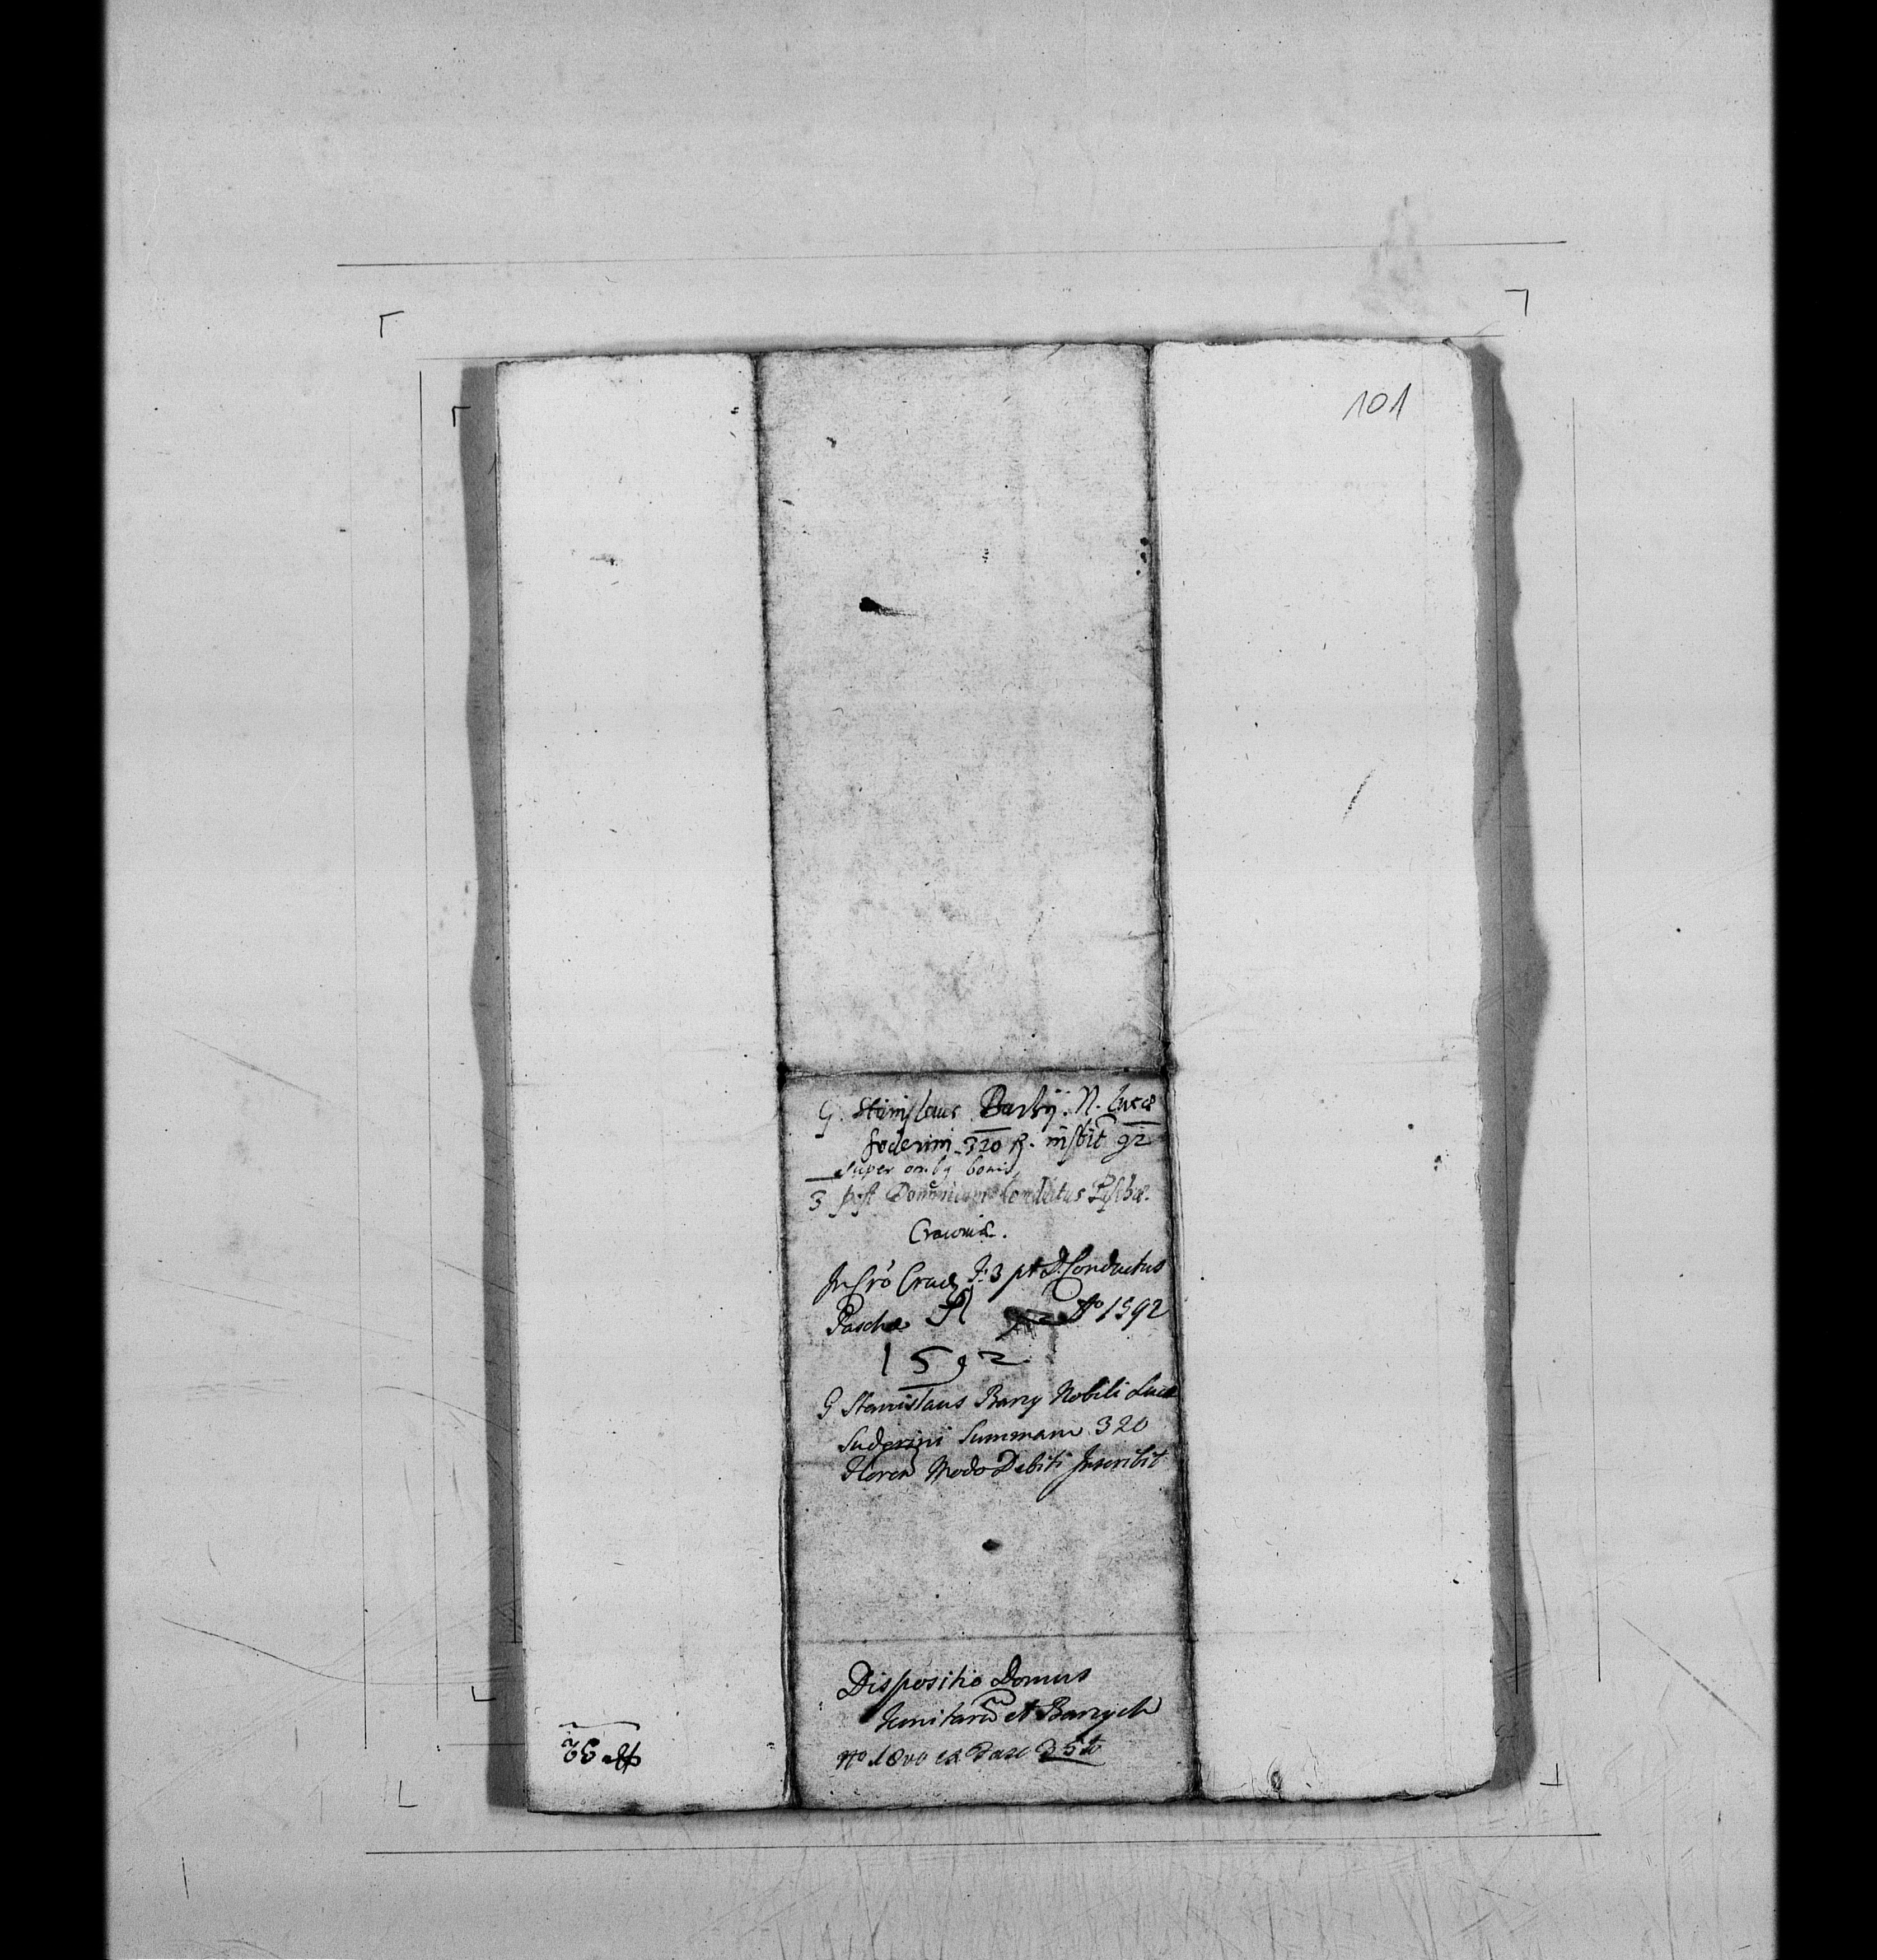 101
G. Stanislaus Barzÿ. N. Lucæ
Soderini 320 fl. inscbit 92
super oibq bonis
3 post Dominicam Conductus Paschæ.
Cracoviæ.
In Cro Crac F. 3 pt D. Conductus
Paschæ Ao 1592
1592
G Stanislaus Barzy Nobili Lucæ
Suderini Summam 320
floren Modo Debiti Inscribit
Dispositio Domus
et Barzych
No 18vo ex Fasc 35to
No 32